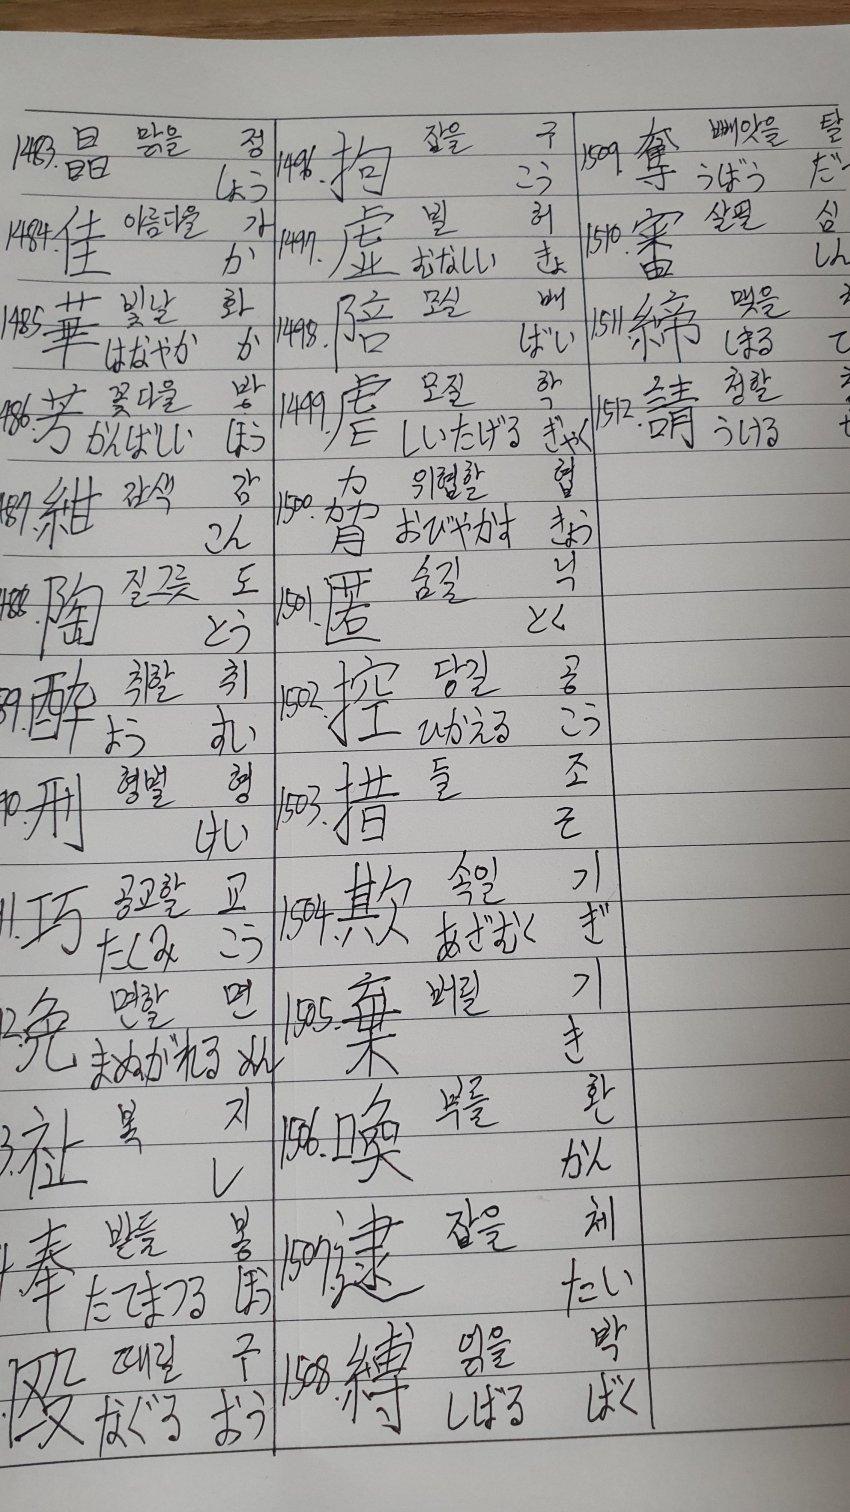 1483. 晶 맑을 정
しょう
1484. 佳 아름다울 가
か
1485. 華 빛날 화
はなやか か
486. 芳 꽃다울 방
かんばしい ほう
487. 紺 감색 감
こん
488. 陶 질그릇 도
とう
89. 酔 취할 취
よう すい
90. 刑 형벌 형
けい
91. 巧 공교할 교
たくみ こう
2. 免 면할 면
まぬがれる めん
3. 祉 복 지
し
奉 받들 봉
たてまつる ほう
殴 때릴 구
なぐる おう
1496. 拘 잡을 구
こう
1497. 虚 빌 허
むなしい きょ
1498. 陪 모실 배
ばい
1499. 虐 모질 학
しいたげる ぎゃく
1500. 脅 위협할 협
おびやかす きょう
1501. 匿 숨길 닉
とく
1502. 控 당길 공
ひかえる こう
1503. 措 둘 조
そ
1504. 欺 속일 기
あざむく ぎ
1505. 棄 버릴 기
き
1506. 喚 부를 환
かん
1507. 逮 잡을 체
たい
1508. 縛 얽을 박
しばる ばく
1509. 奪 빼앗을 탈
うばう だつ
1510. 審 살필 심
しん
1511 締 맺을
しまる て
1512. 請 청할 청
うける せ